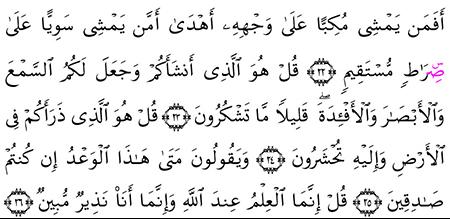 أَفَمَن يَمْشِى مُكِبًّا عَلَىٰ وَجْهِهِۦٓ أَهْدَىٰٓ أَمَّن يَمْشِى سَوِيًّا عَلَىٰ
صِرَٰطٍ مُّسْتَقِيمٍ ﴿٢٢﴾ قُلْ هُوَ ٱلَّذِىٓ أَنشَأَكُمْ وَجَعَلَ لَكُمُ ٱلسَّمْعَ
وَٱلْأَبْصَٰرَ وَٱلْأَفْـِٔدَةَ ۖ قَلِيلًا مَّا تَشْكُرُونَ ﴿٢٣﴾ قُلْ هُوَ ٱلَّذِى ذَرَأَكُمْ فِى
ٱلْأَرْضِ وَإِلَيْهِ تُحْشَرُونَ ﴿٢٤﴾ وَيَقُولُونَ مَتَىٰ هَٰذَا ٱلْوَعْدُ إِن كُنتُمْ
صَٰدِقِينَ ﴿٢٥﴾ قُلْ إِنَّمَا ٱلْعِلْمُ عِندَ ٱللَّهِ وَإِنَّمَآ أَنَا۠ نَذِيرٌ مُّبِينٌ ﴿٢٦﴾